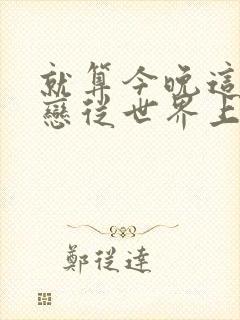 就算今晚這
戀從世界上
鄭從達